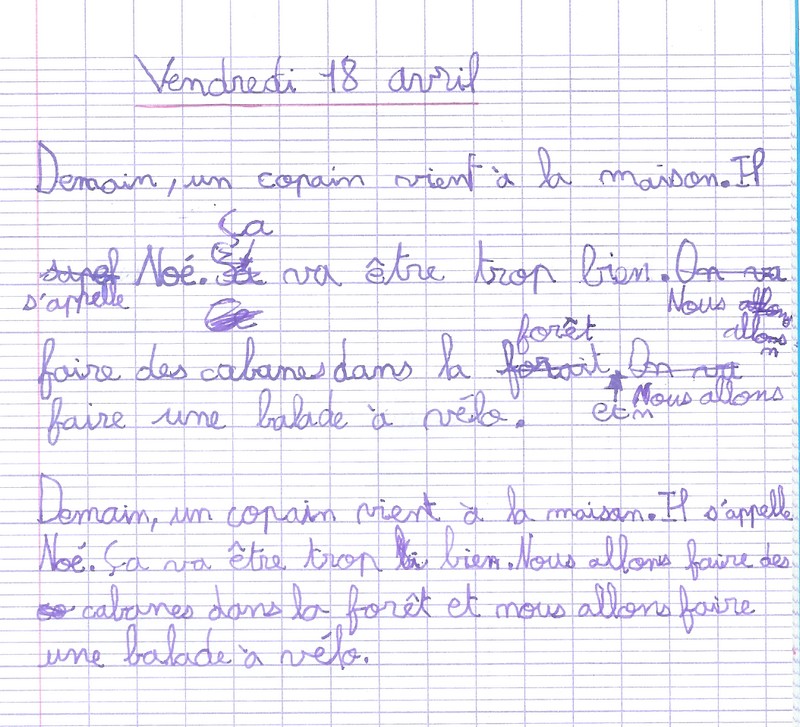 Vendredi 18 avril
Demain, un copain vient à la maison. Il
Ça
Noé. va être trop bien. On va
s'appelle
Nous allons
forêt
allons
faire des cabanes dans la foroit. On va
et n Nous allons
faire une balade à vélo.
Demain, un copain vient à la maison. Il s'appelle
Noé. Ça va être trop bien. Nous allons faire des
cabanes dans la forêt et nous allons faire
une balade à vélo.